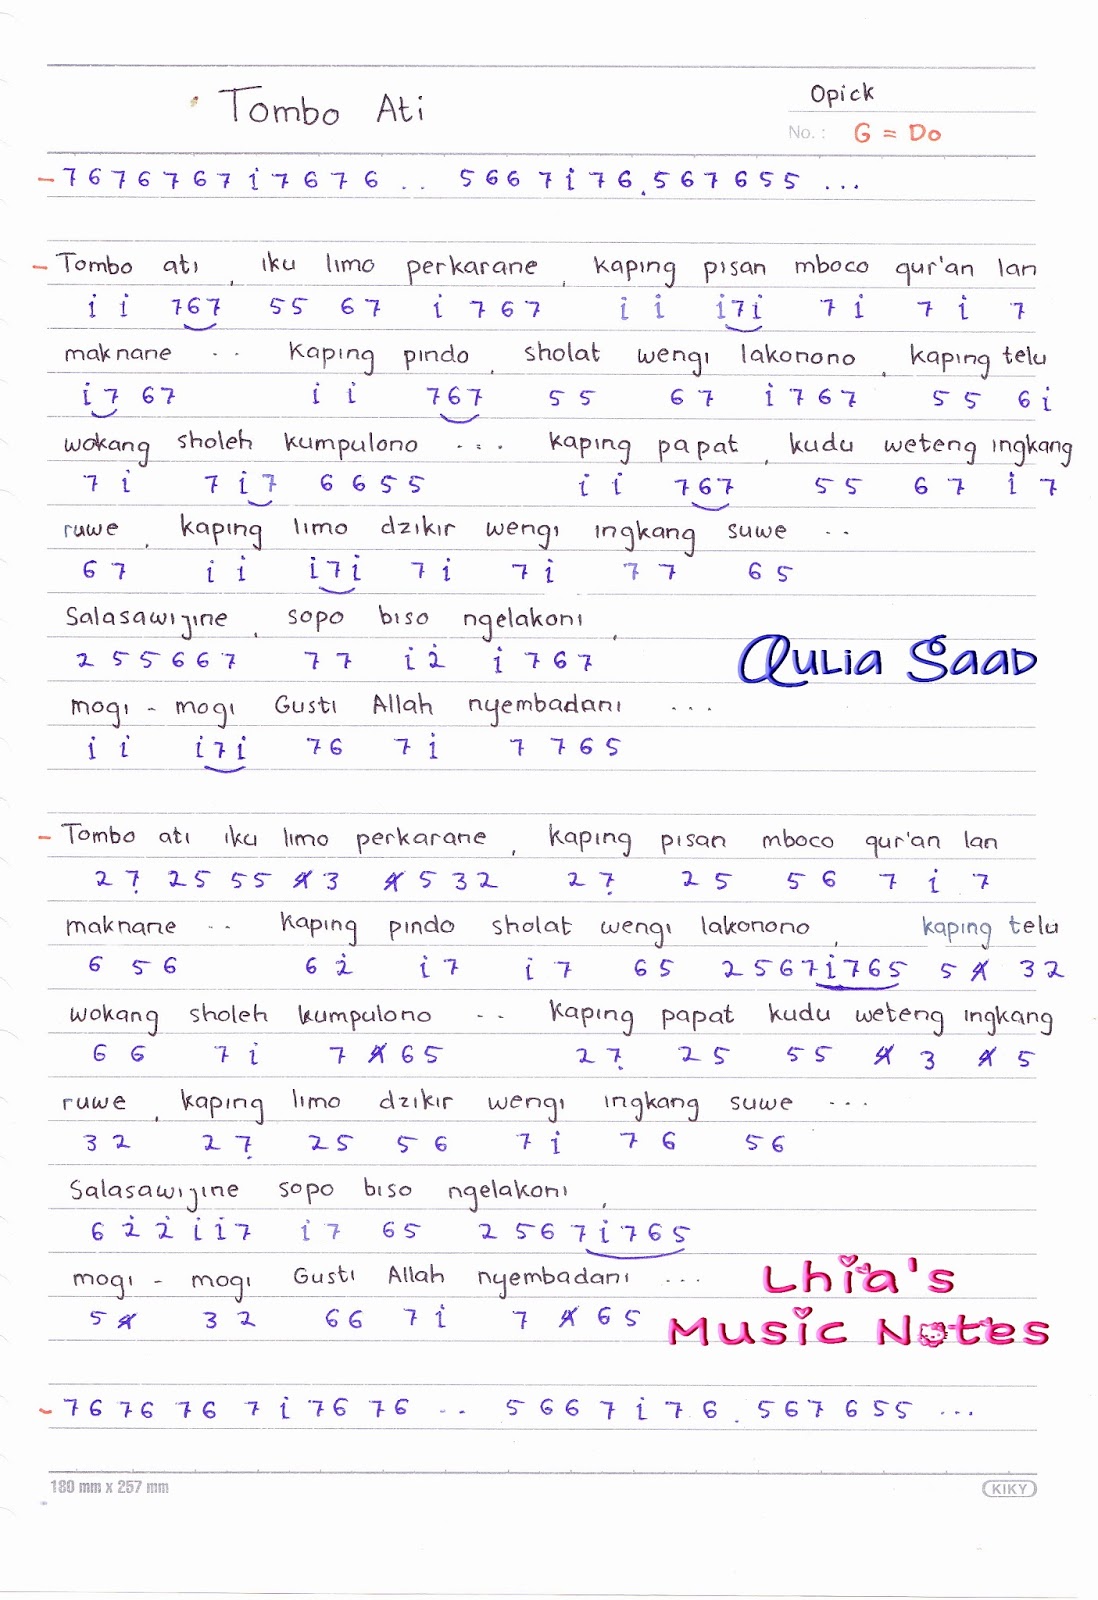 Tombo Ati
Opick
No. : G = Do
- 7 6 7 6 7 6 7 i̇ 7 6 7 6 .. 5 6 6 7 i̇ 7 6 . 5 6 7 6 5 5 ...
- Tombo ati , iku limo perkarane , kaping pisan mboco qur'an lan
i̇ i̇ 767 55 67 i̇ 767 i̇ i̇ i̇7i̇ 7 i̇ 7 i̇ 7
maknane .. kaping pindo , sholat wengi lakonono , kaping telu
i̇7 67 i̇ i̇ 767 55 67 i̇767 55 6i̇
wokang sholeh kumpulono .... kaping papat , kudu weteng ingkang
7 i̇ 7 i̇7 6655 i̇ i̇ 767 55 67 i̇ 7
ruwe , kaping limo dzikir wengi ingkang suwe ..
67 i̇ i̇ i̇7i̇ 7i̇ 7i̇ 77 65
Salasawijine , sopo biso ngelakoni ,
255667 77 i̇2̇ i̇767
Qulia Saad
mogi - mogi Gusti Allah nyembadani ...
i̇ i̇ i̇7i̇ 76 7i̇ 7765
- Tombo ati iku limo perkarane , kaping pisan mboco qur'an lan
27̣ 25 55 4̸3 4̸532 27̣ 25 56 7 i̇ 7
maknane .. kaping pindo sholat wengi lakonono , kaping telu
6 56 62̇ i̇7 i̇7 65 2567i̇765 54̸ 32
wokang sholeh kumpulono .. kaping papat kudu weteng ingkang
66 7i̇ 74̸65 27̣ 25 55 4̸ 3 4̸ 5
ruwe , kaping limo dzikir wengi ingkang suwe ...
32 27̣ 25 56 7i̇ 76 56
Salasawijine sopo biso ngelakoni ,
62̇2̇i̇i̇7 i̇7 65 2567i̇765
mogi - mogi Gusti Allah nyembadani ...
54̸ 32 66 7i̇ 74̸65
Lhia's
Music Notes
- 76 76 76 7 i̇ 76 76 .. 5 6 6 7 i̇ 7 6 . 5 6 7 6 5 5 ...
180 mm x 257 mm
KIKY